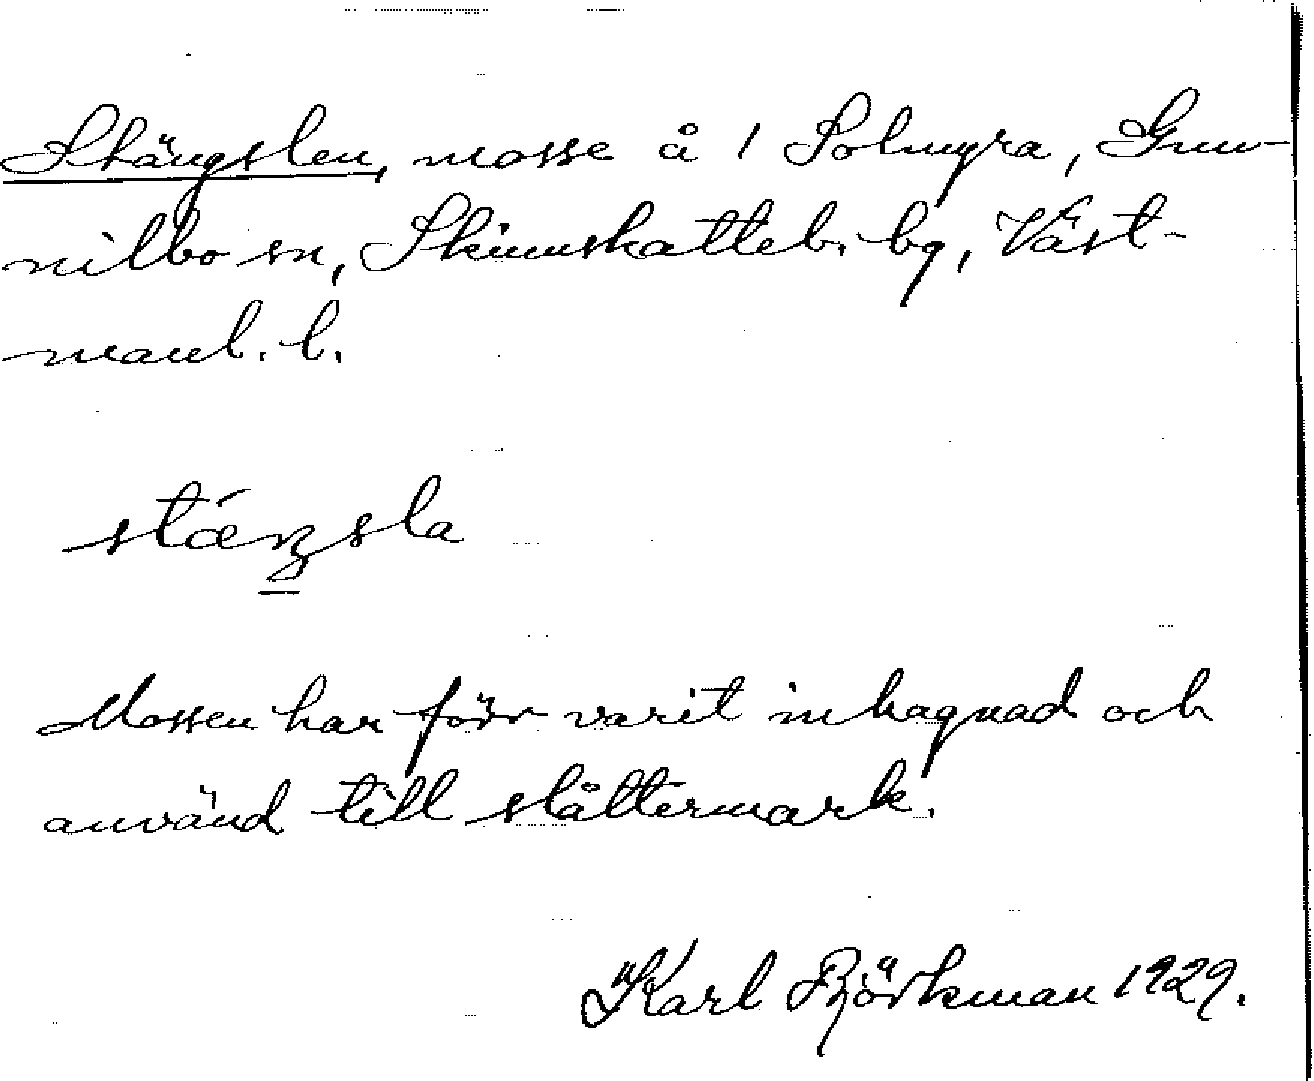 Stängslen, mosse å 1 Solmyra, Gun-
nilbo sn, Skinnskatteb. bg, Väst-
manl. l.
stáŋsla
Mossen har förr varit inhagnad och
använd till slåttermark.
Karl Björkman 1929.